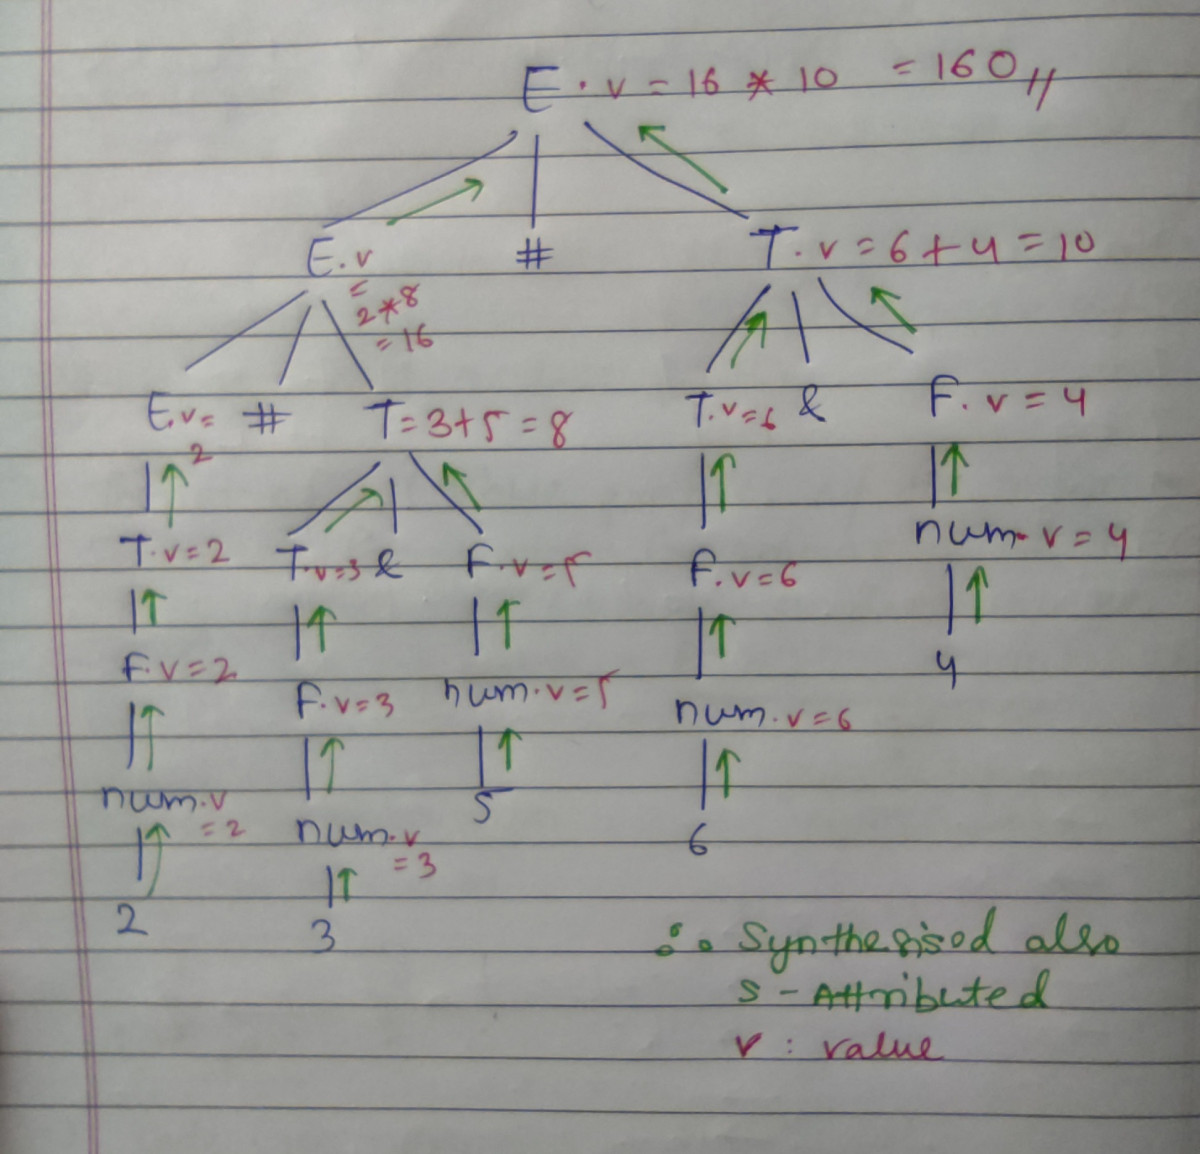 E.v = 16 * 10 = 160 //
E.v # T.v = 6 + 4 = 10
=
2*8
= 16
E.v = # T = 3+5 = 8 T.v=6 & F.v = 4
2
T.v=2 T.v=3 & F.v=5 F.v=6 num.v = 4
F.v=2 F.v=3 num.v=5 num.v=6 4
num.v 5
= 2 num.v 6
= 3
2 3
∴ Synthesised also
S - Attributed
v : value